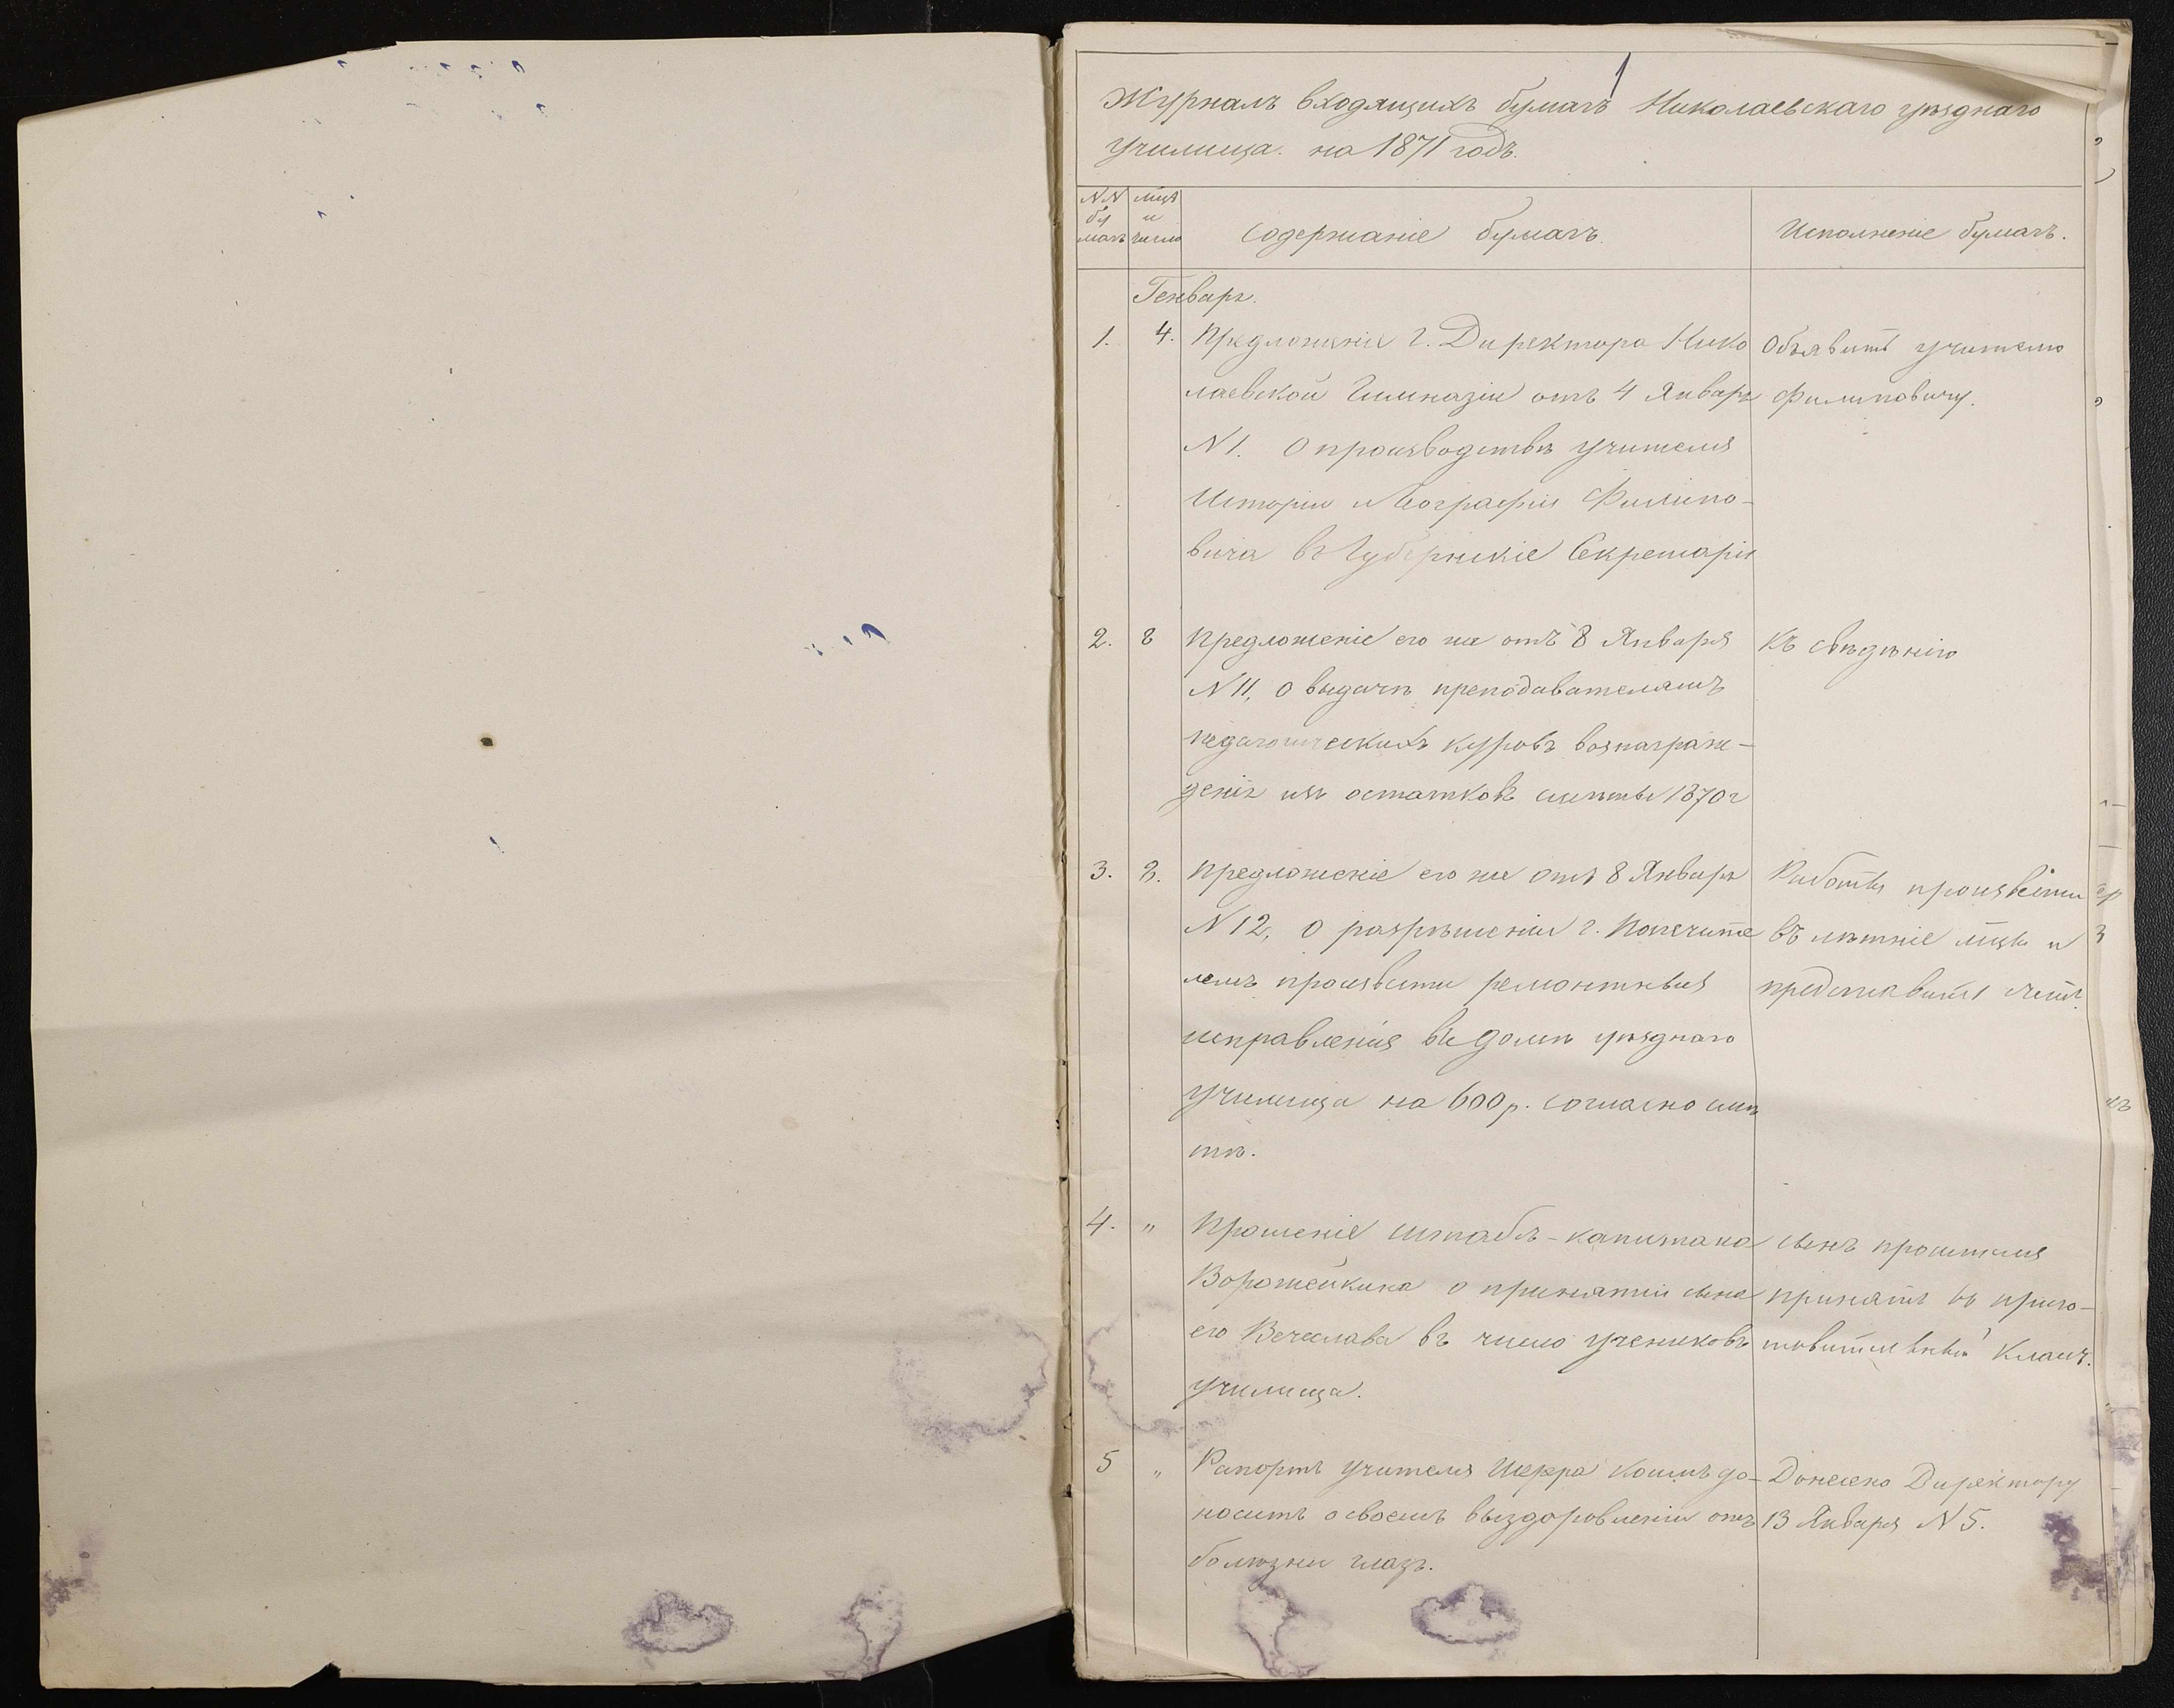 1
Журналъ входящихъ бумагъ Николаевскаго уѣзднаго
училища. на 1871 годъ.
NN бу магъ
мцъ и число
Содержаніе бумагъ.
Исполненіе бумагъ.
Генварь.
1. 4. Предложеніе г. Директора Нико
лаевской Гимназіи отъ 4 Январь
N 1. О производствѣ учителя
Исторіи и Географіи Филипо-
вича въ Губернскіе Секретари
Объявить учителю
Филиповичу.
2. 8 Предложеніе его же отъ 8 Января
N 11, о выдачѣ преподавателямъ
педагогическихъ курсовъ вознаграж-
денія изъ остатковъ смѣты 1870 г
Къ свѣдѣнію
3. 8. Предложеніе его же отъ 8 Январь
N 12, о разрѣшеніи г. Попечите
лемъ произвести ремонтныя
исправленія въ домѣ уѣзднаго
училища на 600 р. согласно смѣ
тѣ.
Работы произвести
въ лѣтніе мцы и
представить
4. " Прошеніе штабсъ-капитана
Ворожейкина о принятіи сына
его Вечеслава въ число учениковъ
училища.
сынъ просителя
принятъ въ приго-
товительный классъ.
5 " Рапортъ учителя Шерра коимъ до-
носитъ о своемъ выздоровленіи отъ
болѣзни глазъ.
Донесено Директору
13 Января N 5.